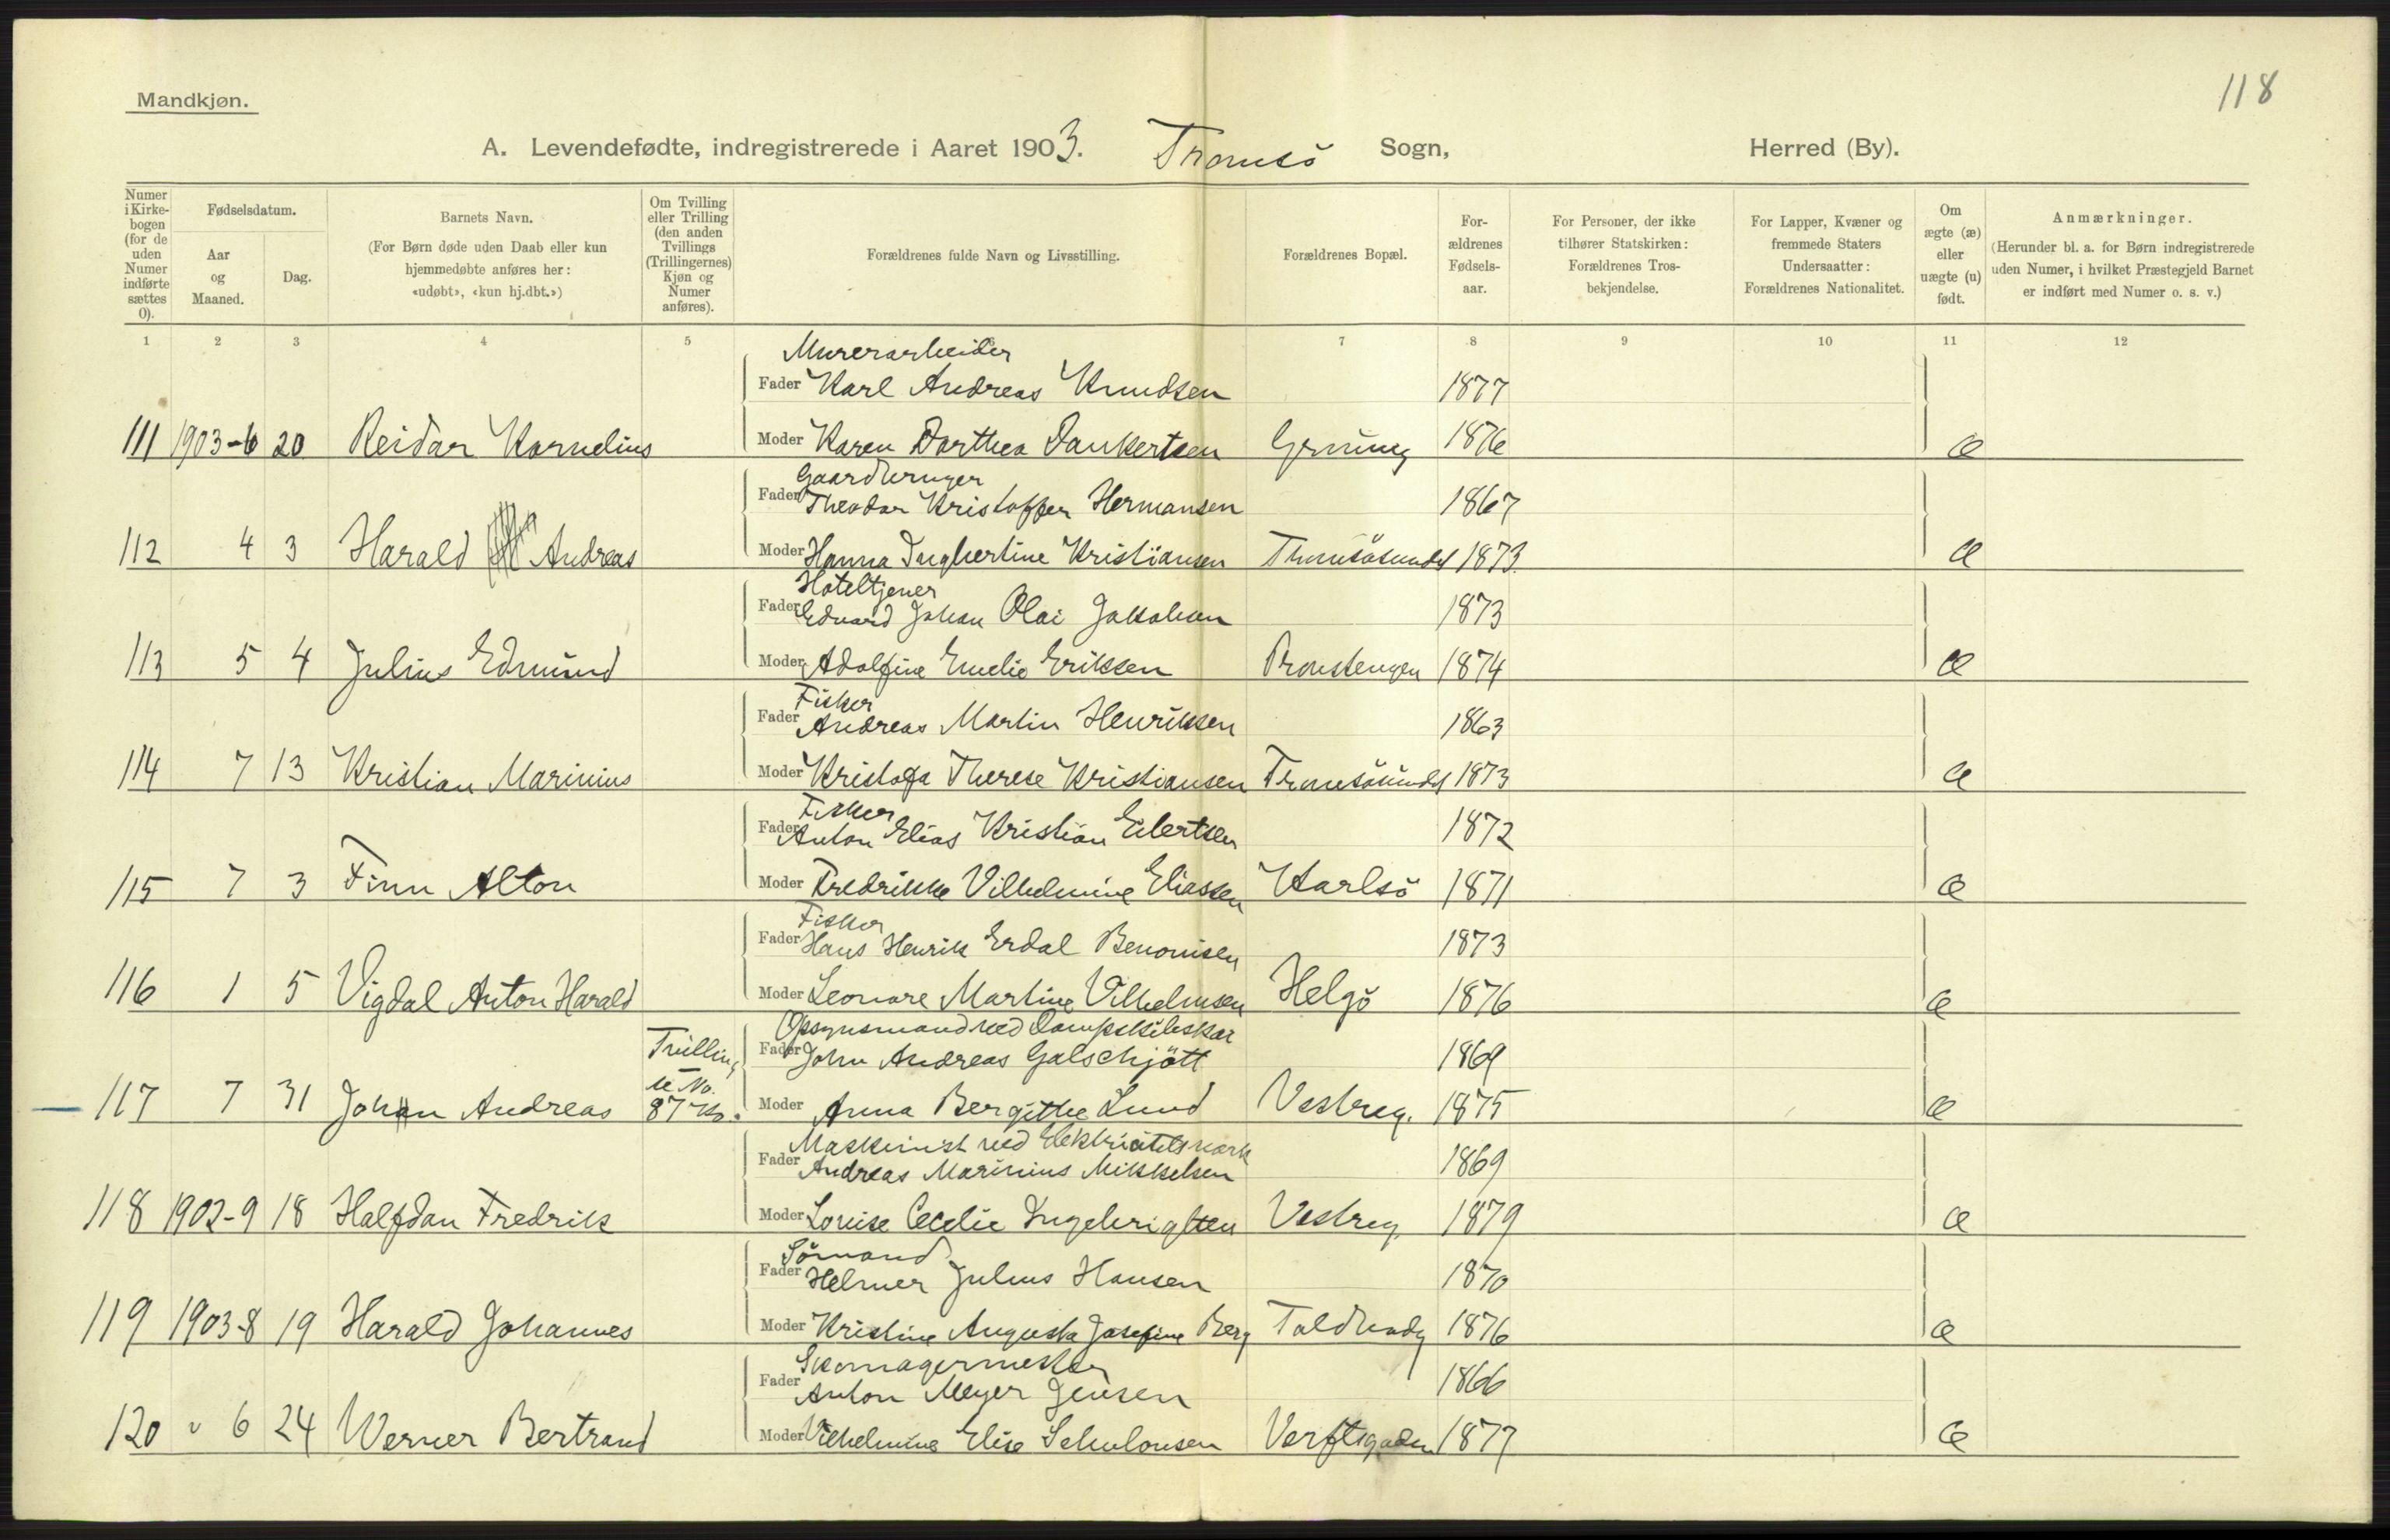 118
Mandkjøn.
A. Levendefødte, indregistrerede i Aaret 1903. Tromsö Sogn, Herred (By).
Numer i Kirkebogen (for de uden Numer indførte sættes 0).
Fødselsdatum.
Aar og Maaned.
Dag.
Barnets Navn.
(For Børn døde uden Daab eller kun hjemmedøbte anføres her: «udøbt», «kun hj.dbt.»)
Om Tvilling eller Trilling (den anden Tvillings (Trillingernes) Kjøn og Numer anføres).
Forældrenes fulde Navn og Livsstilling.
Forældrenes Bopæl.
Forældrenes Fødselsaar.
For Personer, der ikke tilhører Statskirken: Forældrenes Trosbekjendelse.
For Lapper, Kvæner og fremmede Staters Undersaatter: Forældrenes Nationalitet.
Om ægte (æ) eller uægte (u) født.
Anmærkninger.
(Herunder bl. a. for Børn indregistrerede uden Numer, i hvilket Præstegjeld Barnet er indført med Numer o. s. v.)
1 2 3 4 5 7 8 9 10 11 12
Murerarbeider
Fader Karl Andreas Knudsen 1877
111 1903-6 20 Reidar Kornelius Moder Karen Dorthea Dankertsen Grønneg 1876 æ
Gaardbruger
Fader Theodor Kristoffer Hermansen 1867
112 4 3 Harald Andreas Moder Hanna Ingbertine Kristiansen Tromsösundet 1873 æ
Hoteltjener
Fader Edvard Johan Olai Jakobsen 1873
113 5 4 Julius Edmund Moder Adolfine Emelie Eriksen Provstengen 1874 æ
Fisker
Fader Andreas Martin Henriksen 1863
114 7 13 Kristian Marinius Moder Kristofa Therese Kristiansen Tromsösundet 1873 æ
Fisker
Fader Anton Elias Kristian Eilertsen 1872
115 7 3 Finn Alton Moder Fredrikke Vilhelmine Eliassen Karlsö 1871 æ
Fisker
Fader Hans Henrik Erdal Benonisen 1873
116 1 5 Vigdal Anton Harald Moder Leonore Martine Vilhelmsen Helgö 1876 æ
Opsynsmand ved Dampskibskai
Tvilling Fader John Andreas Galschjött 1869
117 7 31 Johan Andreas m No. 87 Kv. Moder Anna Bergitthe Lund Vestreg. 1875 æ
Maskinist ved Elektricitetsværk
Fader Andreas Marinius Mikkelsen 1869
118 1902-9 18 Halfdan Fredrik Moder Lovise Cecelie Ingebrigtsen Vestreg. 1879 æ
Sömand
Fader Helmer Julius Hansen 1870
119 1903-8 19 Harald Johannes Moder Kristine Augusta Josefine Berg Toldbodg 1876 æ
Skomagermester
Fader Anton Meyer Jensen 1866
120 " 6 24 Werner Bertrand Moder Vilhelmine Elise Schulousen Verftsgaden 1877 æ